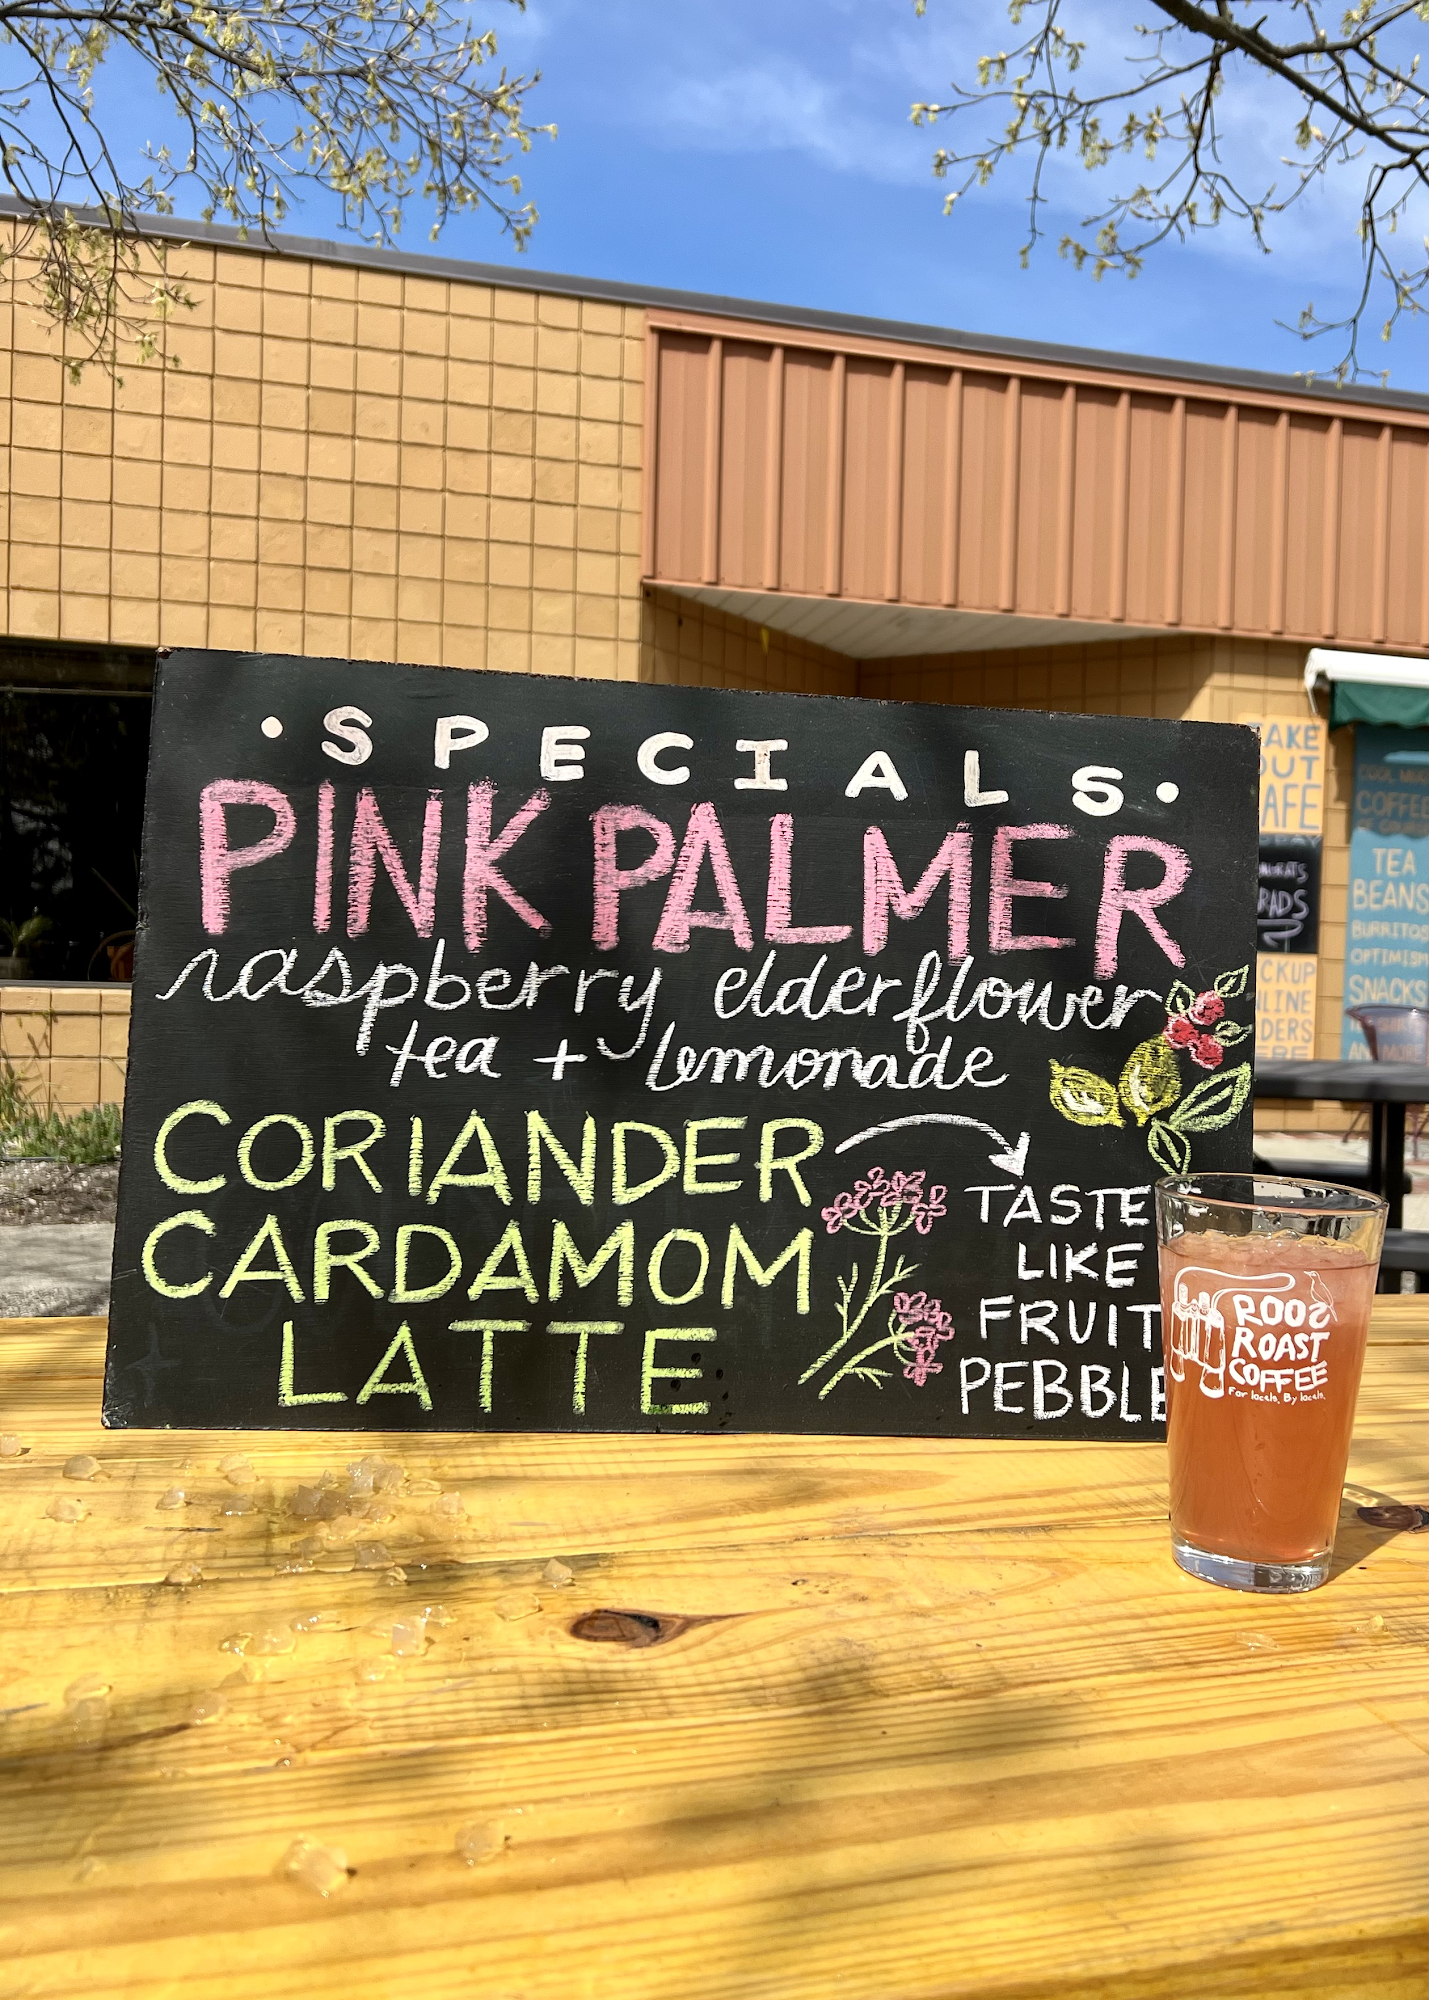 • S P E C I A L S •
PINK PALMER
raspberry elderflower
tea + lemonade
CORIANDER
CARDAMOM
LATTE
TASTE
LIKE
FRUIT
PEBBLE
ROOS
ROAST
COFFEE
For locals. By locals.
AKE
OUT
AFE
RADS
CKUP
LINE
DERS
COFFEE
TEA
BEANS
BURRITOS
OPTIMISM
SNACKS